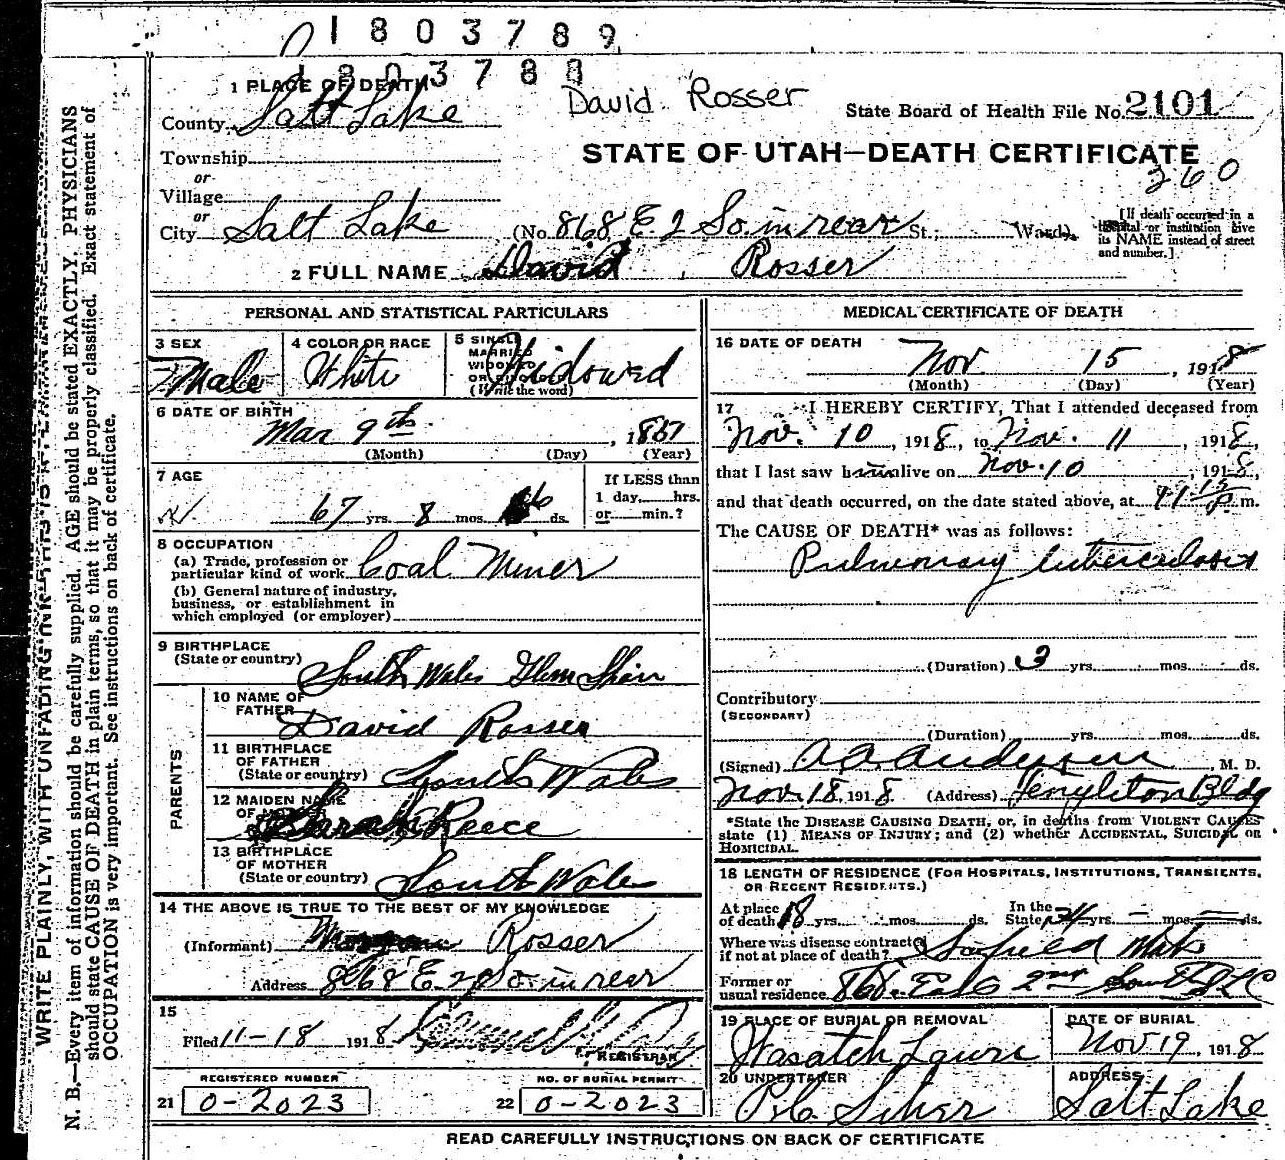 1803789
1803788
1 PLACE OF DEATH
David Rosser
County Salt Lake
State Board of Health File No. 2101
Township
STATE OF UTAH—DEATH CERTIFICATE
or
260
Village
or
City Salt Lake (No. 868 E. 2 So. in rear St.; Ward)
[If death occurred in a hospital or institution give its NAME instead of street and number.]
2 FULL NAME David Rosser
PERSONAL AND STATISTICAL PARTICULARS
3 SEX
Male
4 COLOR OR RACE
White
5 SINGLE
MARRIED
WIDOWED
OR DIVORCED
(Write the word)
Widowed
6 DATE OF BIRTH
Mar 9th , 1851
(Month) (Day) (Year)
7 AGE
67 yrs. 8 mos. 6 ds.
If LESS than
1 day, hrs.
or min.?
8 OCCUPATION
(a) Trade, profession or
particular kind of work Coal Miner
(b) General nature of industry,
business, or establishment in
which employed (or employer)
9 BIRTHPLACE
(State or country) South Wales
PARENTS
10 NAME OF
FATHER David Rosser
11 BIRTHPLACE
OF FATHER
(State or country) South Wales
12 MAIDEN NAME
OF MOTHER Sarah Reece
13 BIRTHPLACE
OF MOTHER
(State or country) South Wales
14 THE ABOVE IS TRUE TO THE BEST OF MY KNOWLEDGE
(Informant) Rosser
Address 868 E. 2 So. in rear
15
Filed 11-18 1918
REGISTRAR
REGISTERED NUMBER
21 0-2023
NO. OF BURIAL PERMIT
22 0-2023
MEDICAL CERTIFICATE OF DEATH
16 DATE OF DEATH
Nov. 15 , 1918
(Month) (Day) (Year)
17 I HEREBY CERTIFY, That I attended deceased from
Nov. 10, 1918, to Nov. 11, 1918,
that I last saw him alive on Nov. 10, 1918,
and that death occurred, on the date stated above, at 11 15 p m.
The CAUSE OF DEATH* was as follows:
Pulmonary tuberculosis
(Duration) 3 yrs. mos. ds.
Contributory
(SECONDARY)
(Duration) yrs. mos. ds.
(Signed) A. A. Anderson, M. D.
Nov. 18, 1918. (Address) Templeton Bldg
*State the DISEASE CAUSING DEATH, or, in deaths from VIOLENT CAUSES
state (1) MEANS OF INJURY; and (2) whether ACCIDENTAL, SUICIDAL OR
HOMICIDAL.
18 LENGTH OF RESIDENCE (FOR HOSPITALS, INSTITUTIONS, TRANSIENTS,
OR RECENT RESIDENTS.)
At place
of death 18 yrs. mos. ds.
In the
State yrs. — mos. — ds.
Where was disease contracted
if not at place of death?
Former or
usual residence 868 East 2nd South SLC
19 PLACE OF BURIAL OR REMOVAL
Wasatch Lawn
DATE OF BURIAL
Nov 19, 1918
20 UNDERTAKER
ADDRESS
Salt Lake
READ CAREFULLY INSTRUCTIONS ON BACK OF CERTIFICATE
WRITE PLAINLY, WITH UNFADING INK
N. B.—Every item of information should be carefully supplied. AGE should be stated EXACTLY. PHYSICIANS
should state CAUSE OF DEATH in plain terms, so that it may be properly classified. Exact statement of
OCCUPATION is very important. See instructions on back of certificate.